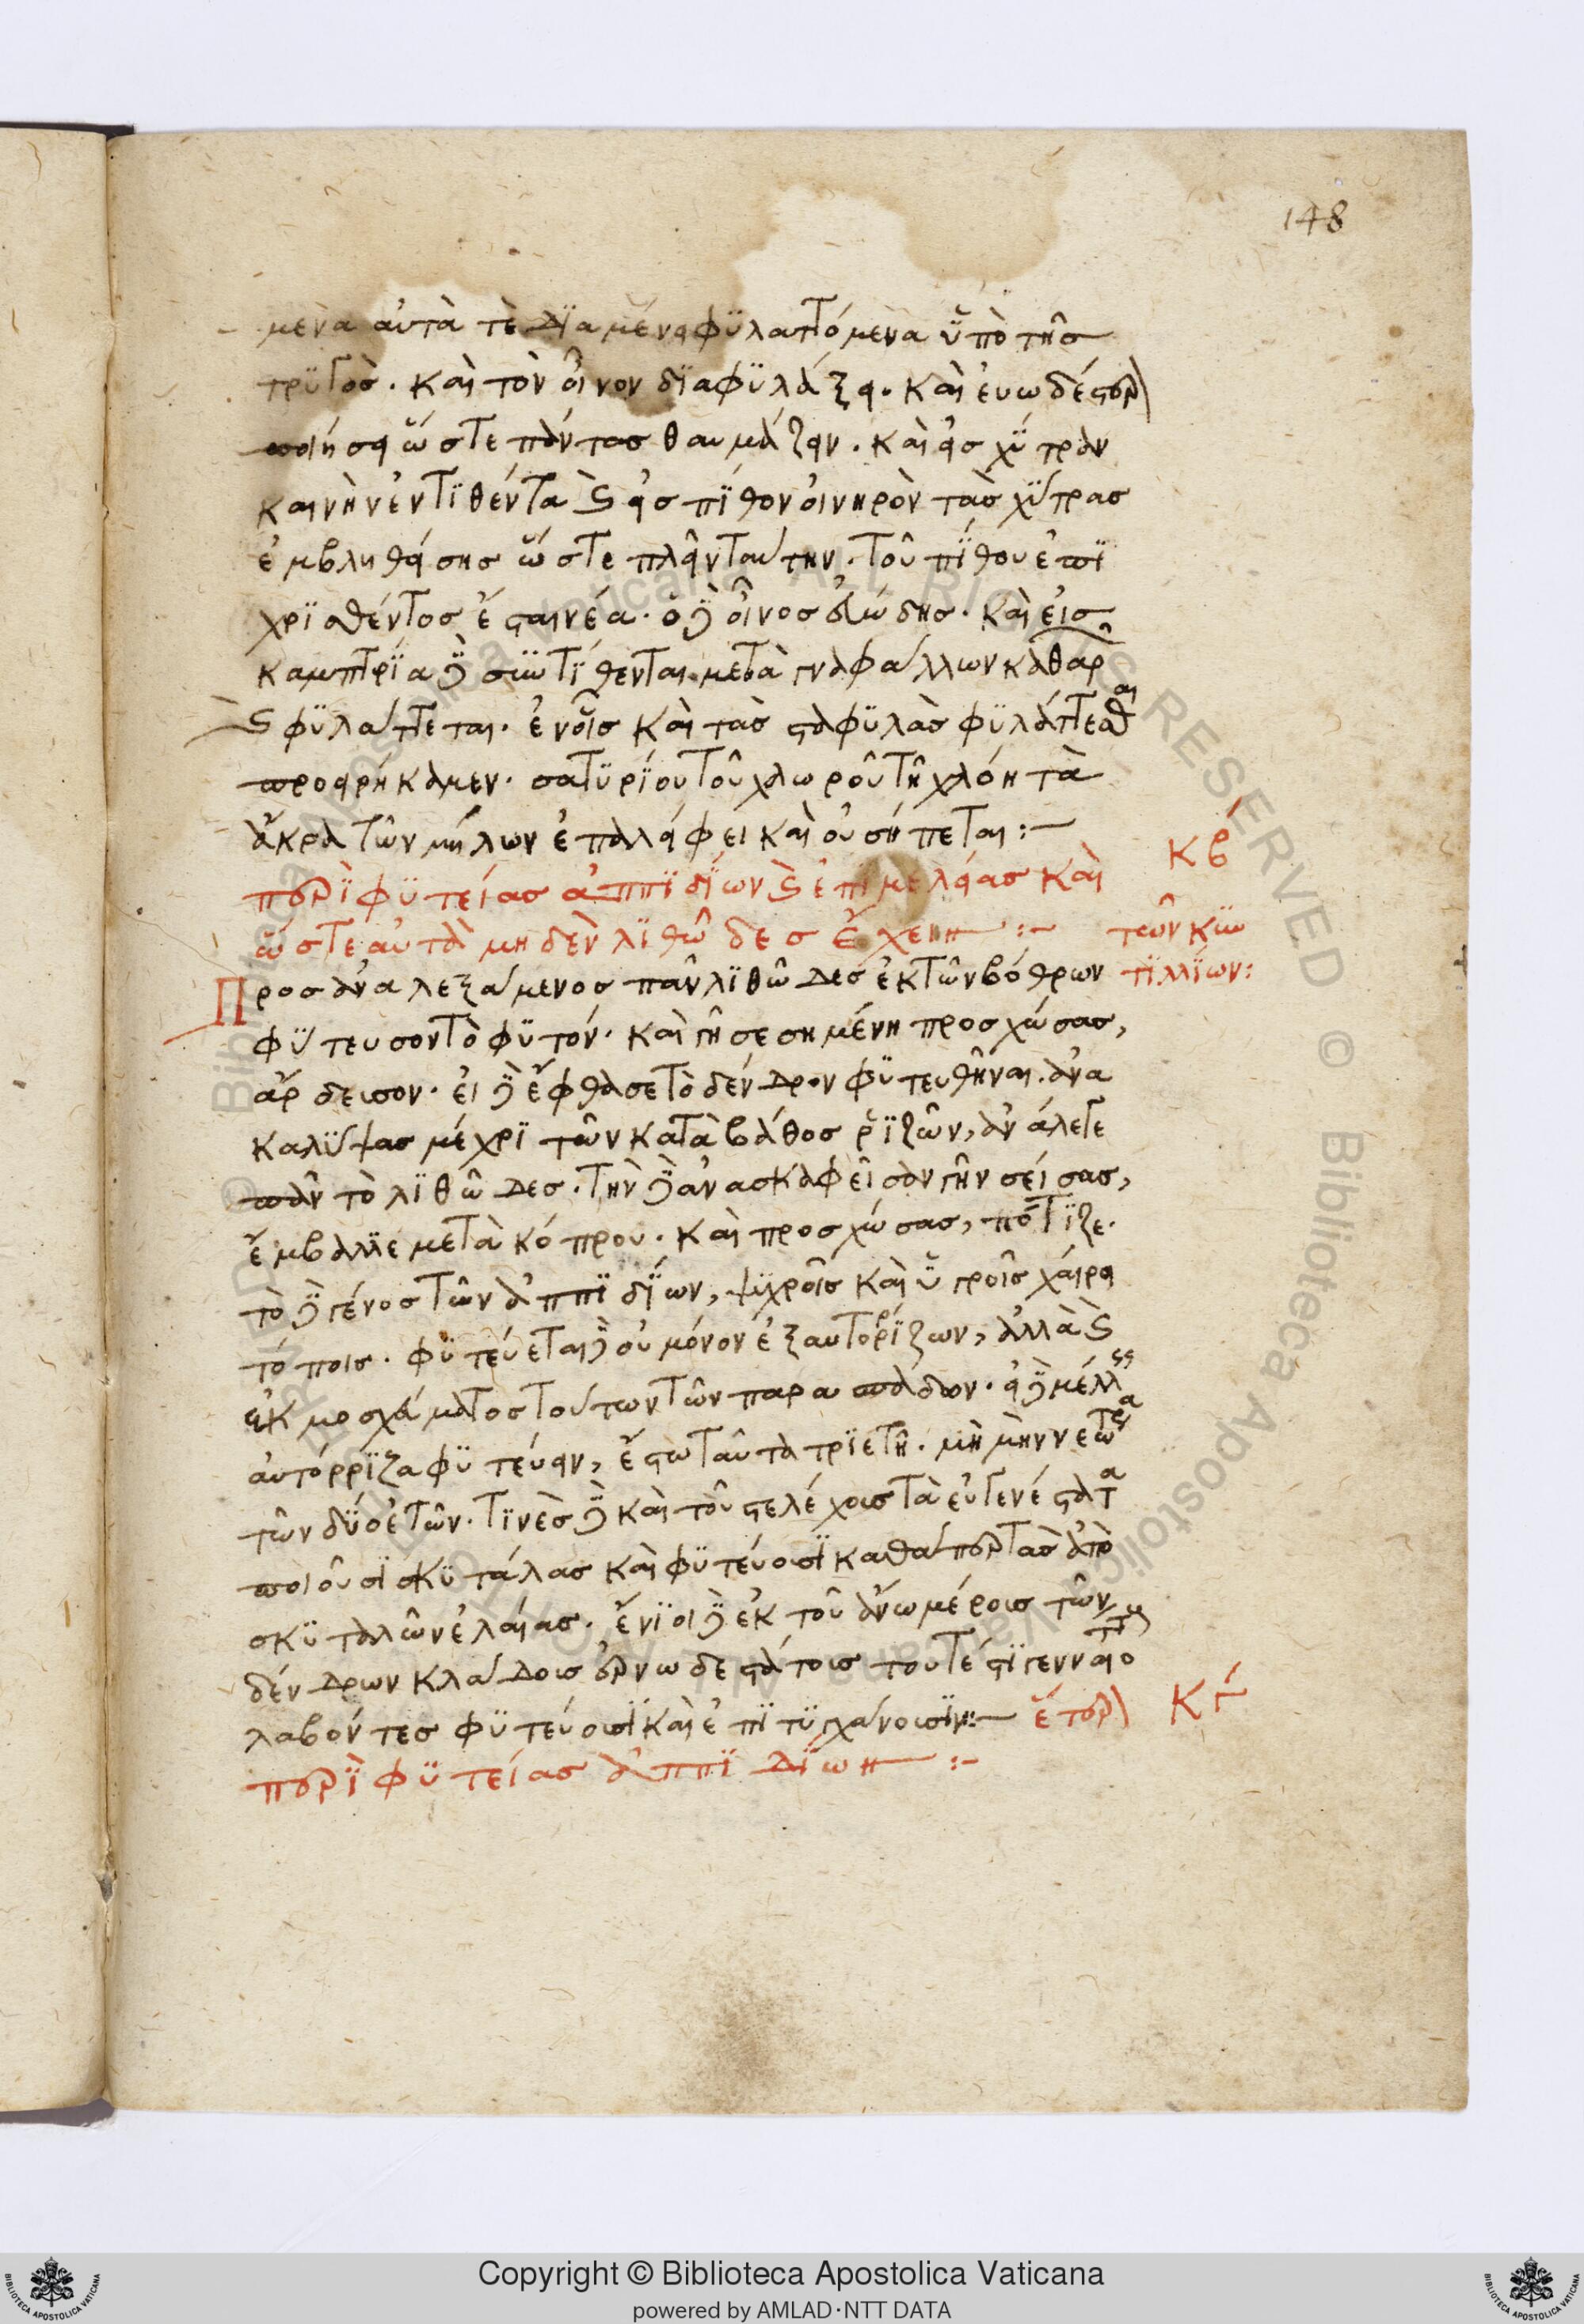 148
μενα αὐτὰ τὲ διαμένει φϋλαττόμενα ὕπὸ τῆς
τρϋγὸς. καὶ τὸν οἶνον δϊαφϋλάξει. καὶ εὐωδέστερ)
ποιήσει ὥστε πάντας θαυμάζειν. καὶ εἰς χΰτραν
καινὴν ἐντϊθέντα ϛ εἰς πΐθον οἰνηρὸν τὰς χΰτρας
ἐμβληθείσης ὥστε πλεῖν ταύτην. τοῦ πΐθου ἐπϊ
χρϊσθέντος ἔσται νέα. ὁ δὲ οἶνος εὐώδης. καὶ εἰς
καμπτρΐα δὲ σϋντΐθενται μετὰ γναφάλλων καθαρῶν
ϛ φϋλάττεται. ἐν οἷς καὶ τὰς σταφϋλὰς φϋλάττεσθαι
προειρήκαμεν. σατϋρΐου τοῦ χλωροῦ τῆ χλόη τὰ
ἄκρα τῶν μήλων ἐπαλείφει καὶ οὐ σήπεται:—
περῒ φϋτείας ἀππϊδΐων ϛ ἐπιμελείας καὶ κβ
ὥστε αὐτὰ μηδὲν λϊθῶδες ἔχειν:— τῶν κϋν
Προσαναλεξάμενος πᾶν λϊθῶδες ἐκ τῶν βόθρων τϊλλΐων:
φΰτευσον τὸ φϋτόν. καὶ γῆ σεσημένη προσχώσας,
ἄρδευσον. εἰ δὲ ἔφθασε τὸ δένδρον φϋτευθῆναι. ἀνα
καλΰψας μέχρϊ τῶν κατὰ βάθος ῥϊζῶν, ἀνάλεγε
πᾶν τὸ λϊθῶδες. τὴν δὲ ἀνασκαφεῖσαν γῆν σείσας,
ἔμβαλλε μετὰ κόπρου. καὶ προσχώσας, πότϊζε.
τὸ δὲ γένος τῶν ἀππϊδΐων, ψϋχροῖς καὶ ὕγροῖς χαίρει
τόποις. φϋτεύεται δὲ οὐ μόνον ἐξ αυτορρΐζων, ἀλλὰ ϛ
ἐκ μοσχεύματος τούτων τῶν παρασπάδων. εἰ δὲ μέλλεις
αὐτόρρϊζα φϋτεύειν, ἔστω ταῦτα τρϊετῆ. μὴ μὴν νεώτερα
τῶν δΰο ἐτῶν. τϊνὲς δὲ καὶ τοῦ στελέχους τὰ εὐγενέστατα
ποιοῦσϊ σκϋτάλας καὶ φϋτεύουσϊ καθάπερ τὰς ἀπὸ
σκϋταλῶν ἐλαίας. ἔνϊοι δὲ ἐκ τοῦ ἄνω μέρους τῶν
δένδρων κλάδους εὐγενωδεστάτους τουτέστϊ γενναιοτάτους
λαβόντες φϋτεύουσϊ καὶ ἐπϊτϋγχάνουσϊν:— ἕτερ) κγ
περῒ φϋτείας ἀππϊδΐων:—
Copyright © Biblioteca Apostolica Vaticana
powered by AMLAD·NTT DATA